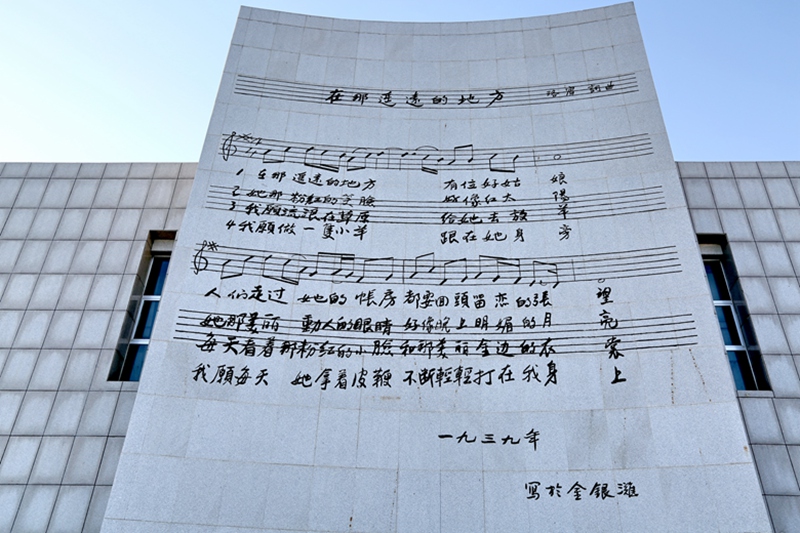 在那遥遠的地方 洛賓 詞曲
1 在那遥遠的地方 有位好姑 娘
2 她那粉紅的笑臉 好像红太 陽
3 我願流浪在草原 给她去放 羊
4 我願做一隻小羊 跟在她身 旁
人们走过 她的帳房都要回頭留恋的張 望
她那美丽 動人的眼睛 好像晚上明媚的月 亮
每天看着那粉红的小臉和那美丽金边的衣 裳
我願每天 她拿着皮鞭 不断輕輕打在我身 上
一九三九年
寫於金銀灘